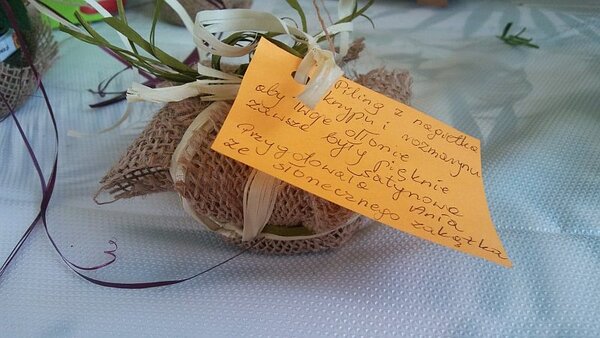 Piling z nagietka
knypu i rozmarynu
aby Twoje dłonie
zawsze były pięknie
satynowe
Przygotowała Ania
ze słonecznego zakątka